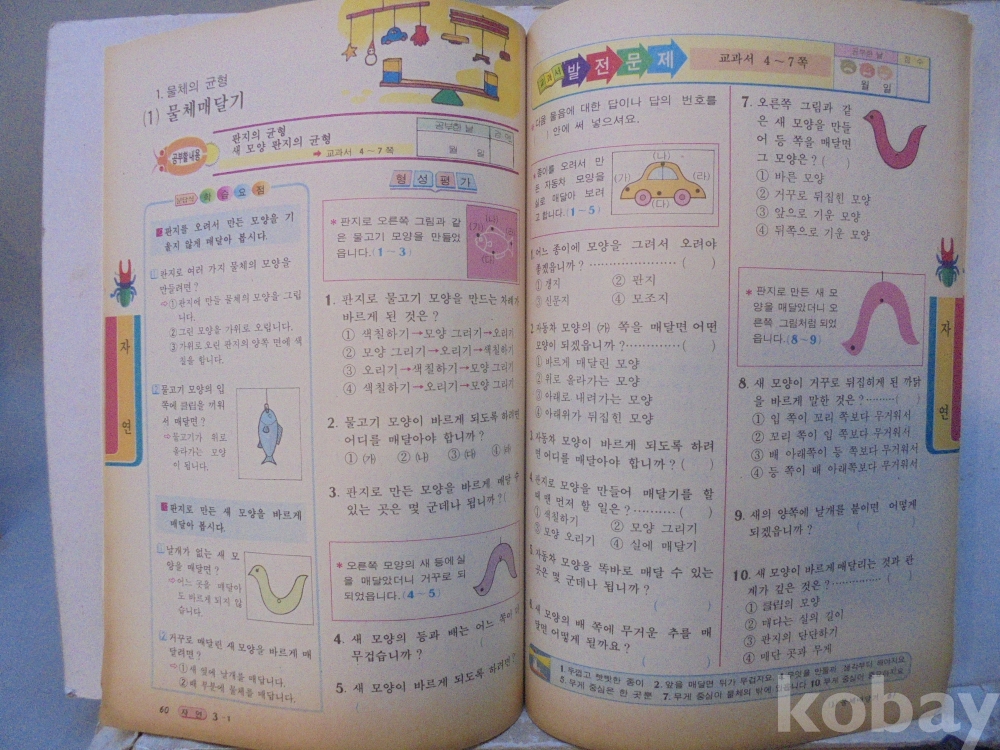 1. 물체의 균형
(1) 물체매달기
공부할내용
판지의 균형
새 모양 판지의 균형
➡ 교과서 4~7쪽
공부한 날
월 일
학 습 요 점
판지를 오려서 만든 모양을 기
울지 않게 매달아 봅시다.
1 판지로 여러 가지 물체의 모양을
만들려면?
⇨① 판지에 만들 물체의 모양을 그립
니다.
② 그린 모양을 가위로 오립니다.
③ 가위로 오린 판지의 양쪽 면에 색
칠을 합니다.
2 물고기 모양의 입
쪽에 클립을 끼워
서 매달면?
⇨물고기가 위로
올라가는 모양
이 됩니다.
판지로 만든 새 모양을 바르게
매달아 봅시다.
1 날개가 없는 새 모
양을 매달면?
⇨어느 곳을 매달아
도 바르게 되지 않
습니다.
2 거꾸로 매달린 새 모양을 바르게 매
달려면?
⇨① 새 옆에 날개를 매답니다.
② 배 부분에 물체를 매답니다.
60 자연 3-1
자 연
형 성 평 가
* 판지로 오른쪽 그림과 같
은 물고기 모양을 만들었
읍니다.(1~3)
(가) (나) (다)
1. 판지로 물고기 모양을 만드는 차례가
바르게 된 것은?
① 색칠하기→모양 그리기→오리기
② 모양 그리기→오리기→색칠하기
③ 오리기→색칠하기→모양 그리기
④ 색칠하기→오리기→모양 그리기
2. 물고기 모양이 바르게 되도록 하려면
어디를 매달아야 합니까?
① (가) ② (나) ③ (다) ④ (라)
3. 판지로 만든 모양을 바르게 매달 수
있는 곳은 몇 군데나 됩니까?(
* 오른쪽 모양의 새 등에 실
을 매달았더니 거꾸로 되
었읍니다.(4~5)
4. 새 모양의 등과 배는 어느 쪽이 더
무겁습니까? (
5. 새 모양이 바르게 되도록 하려면?
(
발 전 문 제
교과서 4~7쪽
공부한 날
점 수
월 일
다음 물음에 대한 답이나 답의 번호를
안에 써 넣으셔요.
* 종이를 오려서 만
든 자동차 모양을
실로 매달아 보려
고 합니다.(1~5)
(가) (나) (다) (라)
1. 어느 종이에 모양을 그려서 오려야
좋겠읍니까? ( )
① 갱지 ② 판지
③ 신문지 ④ 모조지
2. 자동차 모양의 (가) 쪽을 매달면 어떤
모양이 되겠읍니까? ( )
① 바르게 매달린 모양
② 위로 올라가는 모양
③ 아래로 내려가는 모양
④ 아래위가 뒤집힌 모양
3. 자동차 모양이 바르게 되도록 하려
면 어디를 매달아야 합니까? ( )
4. 판지로 모양을 만들어 매달기를 할
때 맨 먼저 할 일은? ( )
① 색칠하기 ② 모양 그리기
③ 모양 오리기 ④ 실에 매달기
5. 자동차 모양을 똑바로 매달 수 있는
곳은 몇 군데나 됩니까?
( )
6. 새 모양의 배 쪽에 무거운 추를 매
달면 어떻게 될까요?
( )
7. 오른쪽 그림과 같
은 새 모양을 만들
어 등 쪽을 매달면
그 모양은? ( )
① 바른 모양
② 거꾸로 뒤집힌 모양
③ 앞으로 기운 모양
④ 뒤쪽으로 기운 모양
* 판지로 만든 새 모
양을 매달았더니 오
른쪽 그림처럼 되었
읍니다.(8~9)
8. 새 모양이 거꾸로 뒤집히게 된 까닭
을 바르게 말한 것은? ( )
① 입 쪽이 꼬리 쪽보다 무거워서
② 꼬리 쪽이 입 쪽보다 무거워서
③ 배 아래쪽이 등 쪽보다 무거워서
④ 등 쪽이 배 아래쪽보다 무거워서
9. 새의 양쪽에 날개를 붙이면 어떻게
되겠읍니까? ( )
10. 새 모양이 바르게 매달리는 것과 관
계가 깊은 것은? ( )
① 클립의 모양
② 매다는 실의 길이
③ 판지의 단단하기
④ 매단 곳과 무게
자 연
1. 두껍고 빳빳한 종이 2. 앞을 매달면 뒤가 무겁지요.
5. 무게 중심은 한 곳뿐 7. 무게 중심이 물체의 밖에 있읍니다
kobay